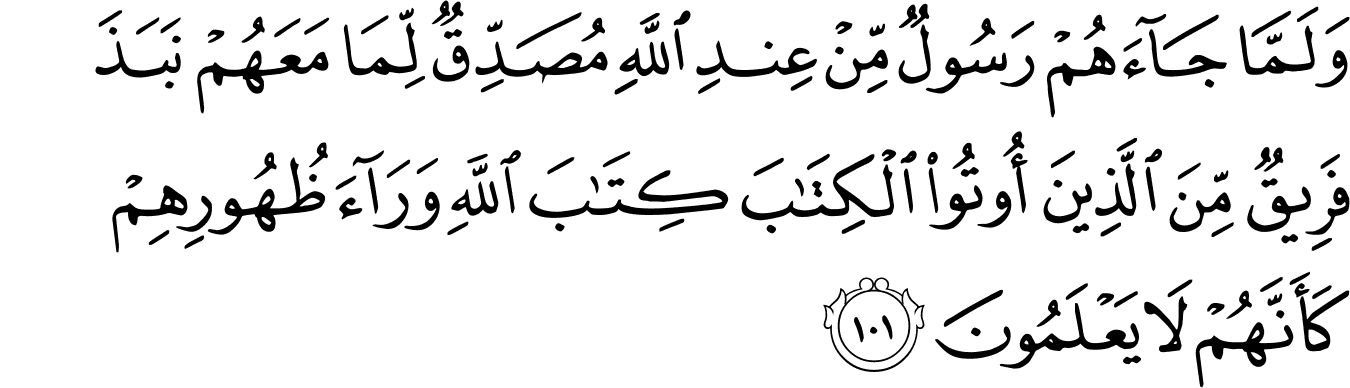 وَلَمَّا جَآءَهُمْ رَسُولٌ مِّنْ عِندِ ٱللَّهِ مُصَدِّقٌ لِّمَا مَعَهُمْ نَبَذَ
فَرِيقٌ مِّنَ ٱلَّذِينَ أُوتُوا۟ ٱلْكِتَـٰبَ كِتَـٰبَ ٱللَّهِ وَرَآءَ ظُهُورِهِمْ
كَأَنَّهُمْ لَا يَعْلَمُونَ ١٠١